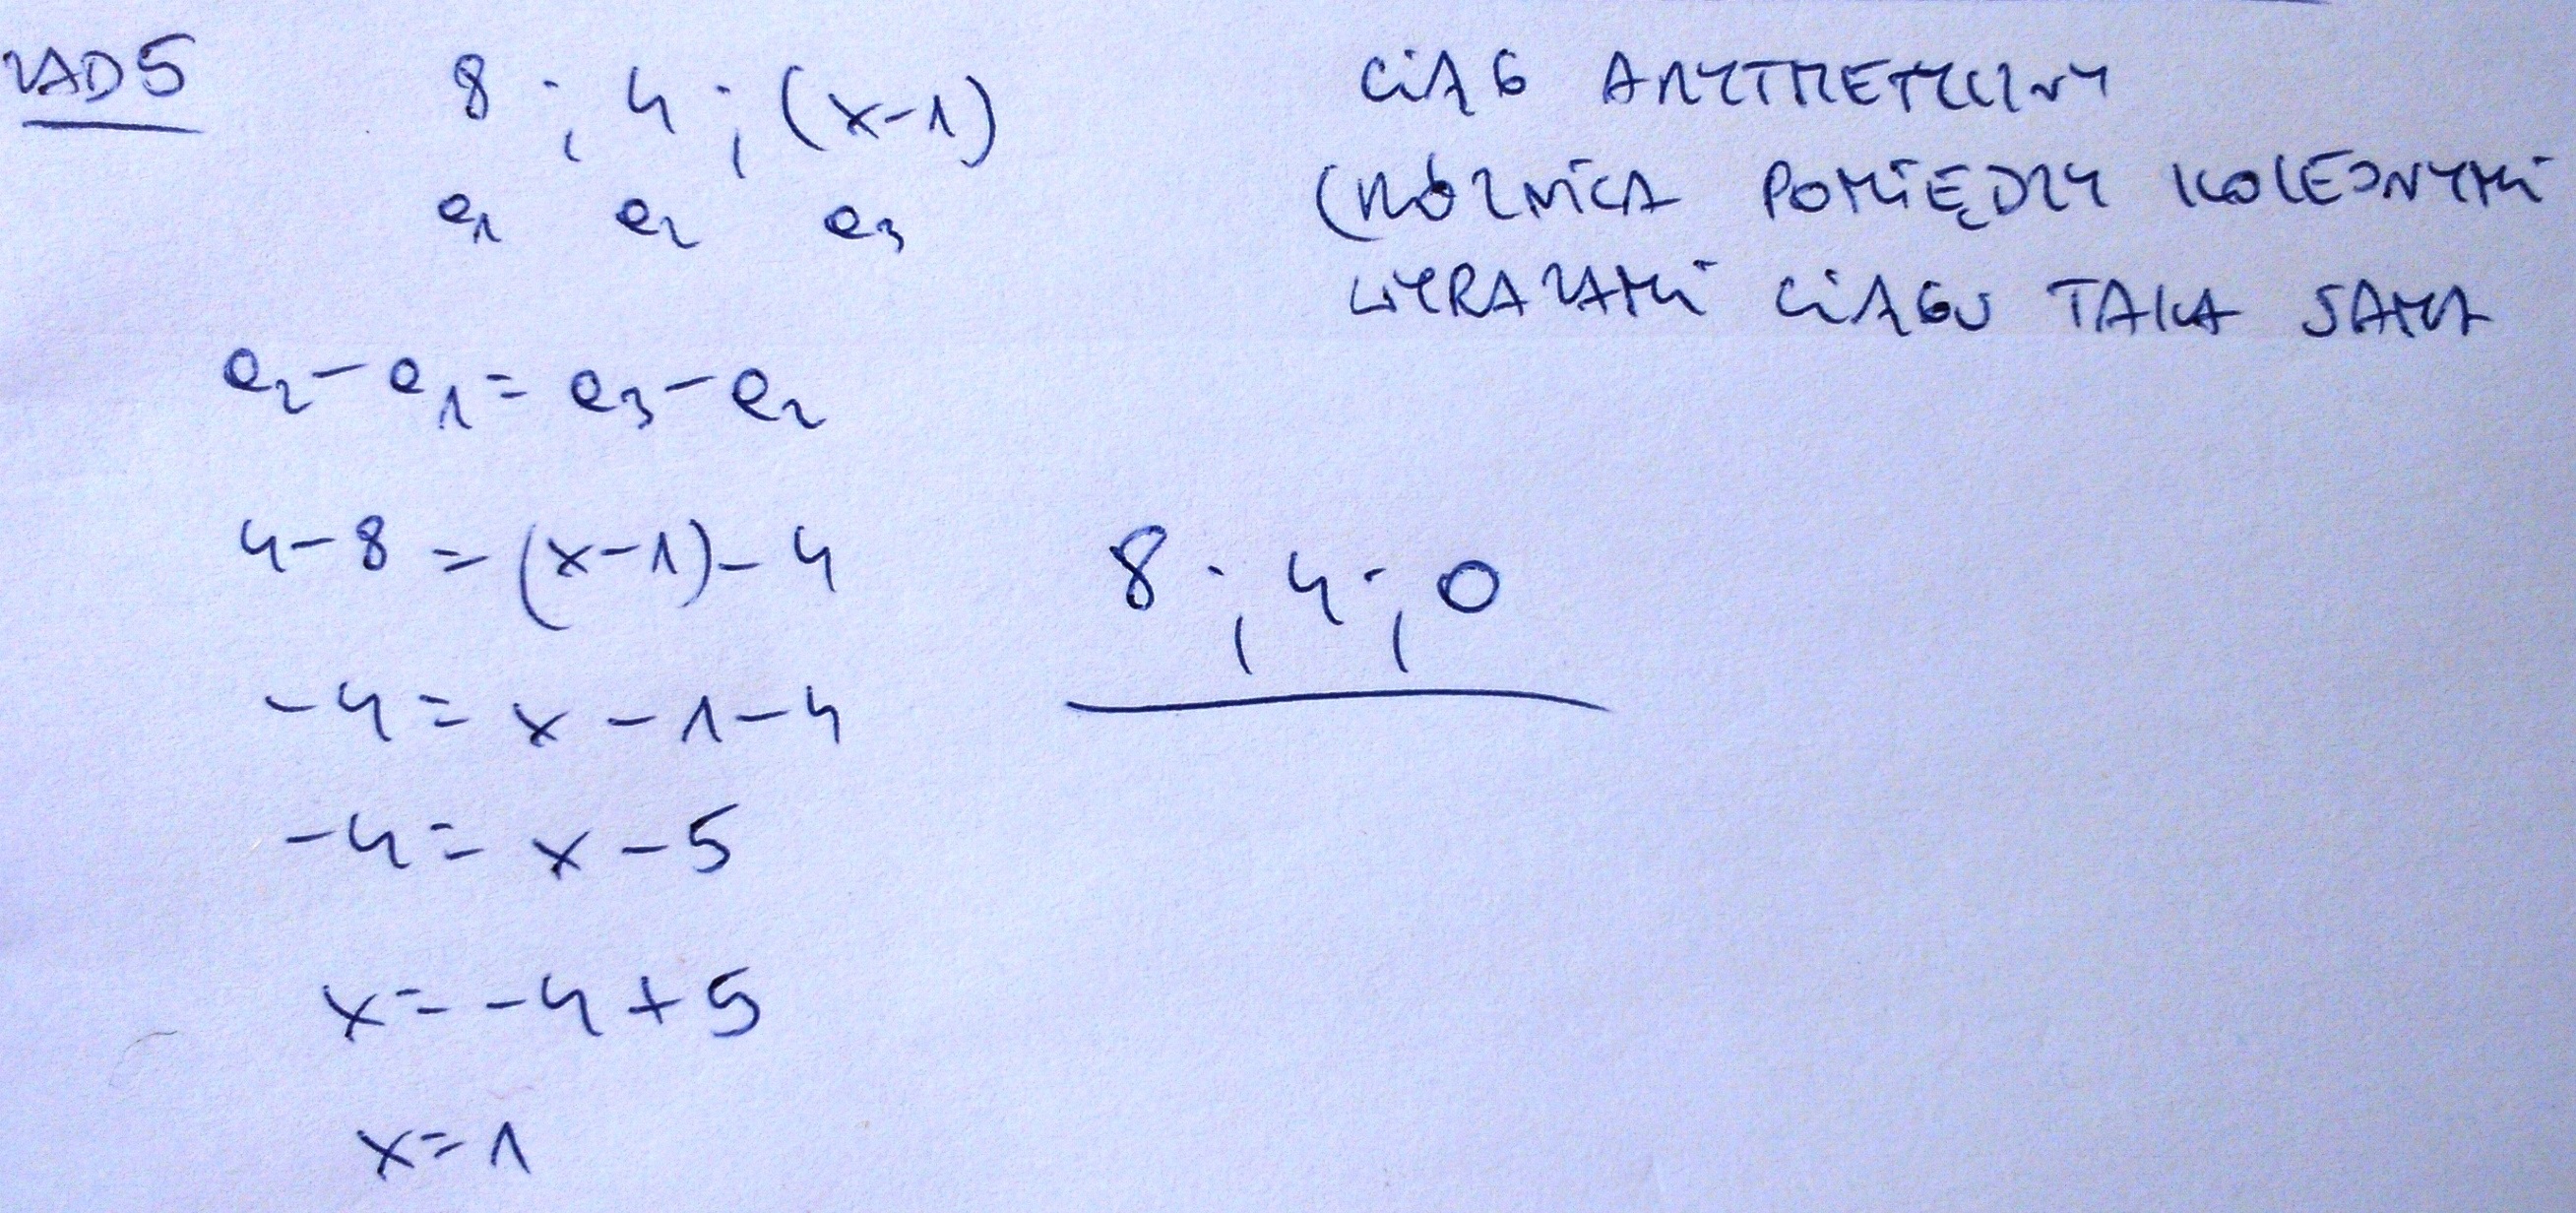 ZAD 5
8 ; 4 ; (x-1)
a₁ a₂ a₃
CIĄG ARYTMETYCZNY
(RÓŻNICA POMIĘDZY KOLEJNYMI
WYRAZAMI CIĄGU TAKA SAMA
a₂ - a₁ = a₃ - a₂
4 - 8 = (x-1) - 4
-4 = x - 1 - 4
-4 = x - 5
x = -4 + 5
x = 1
8 ; 4 ; 0